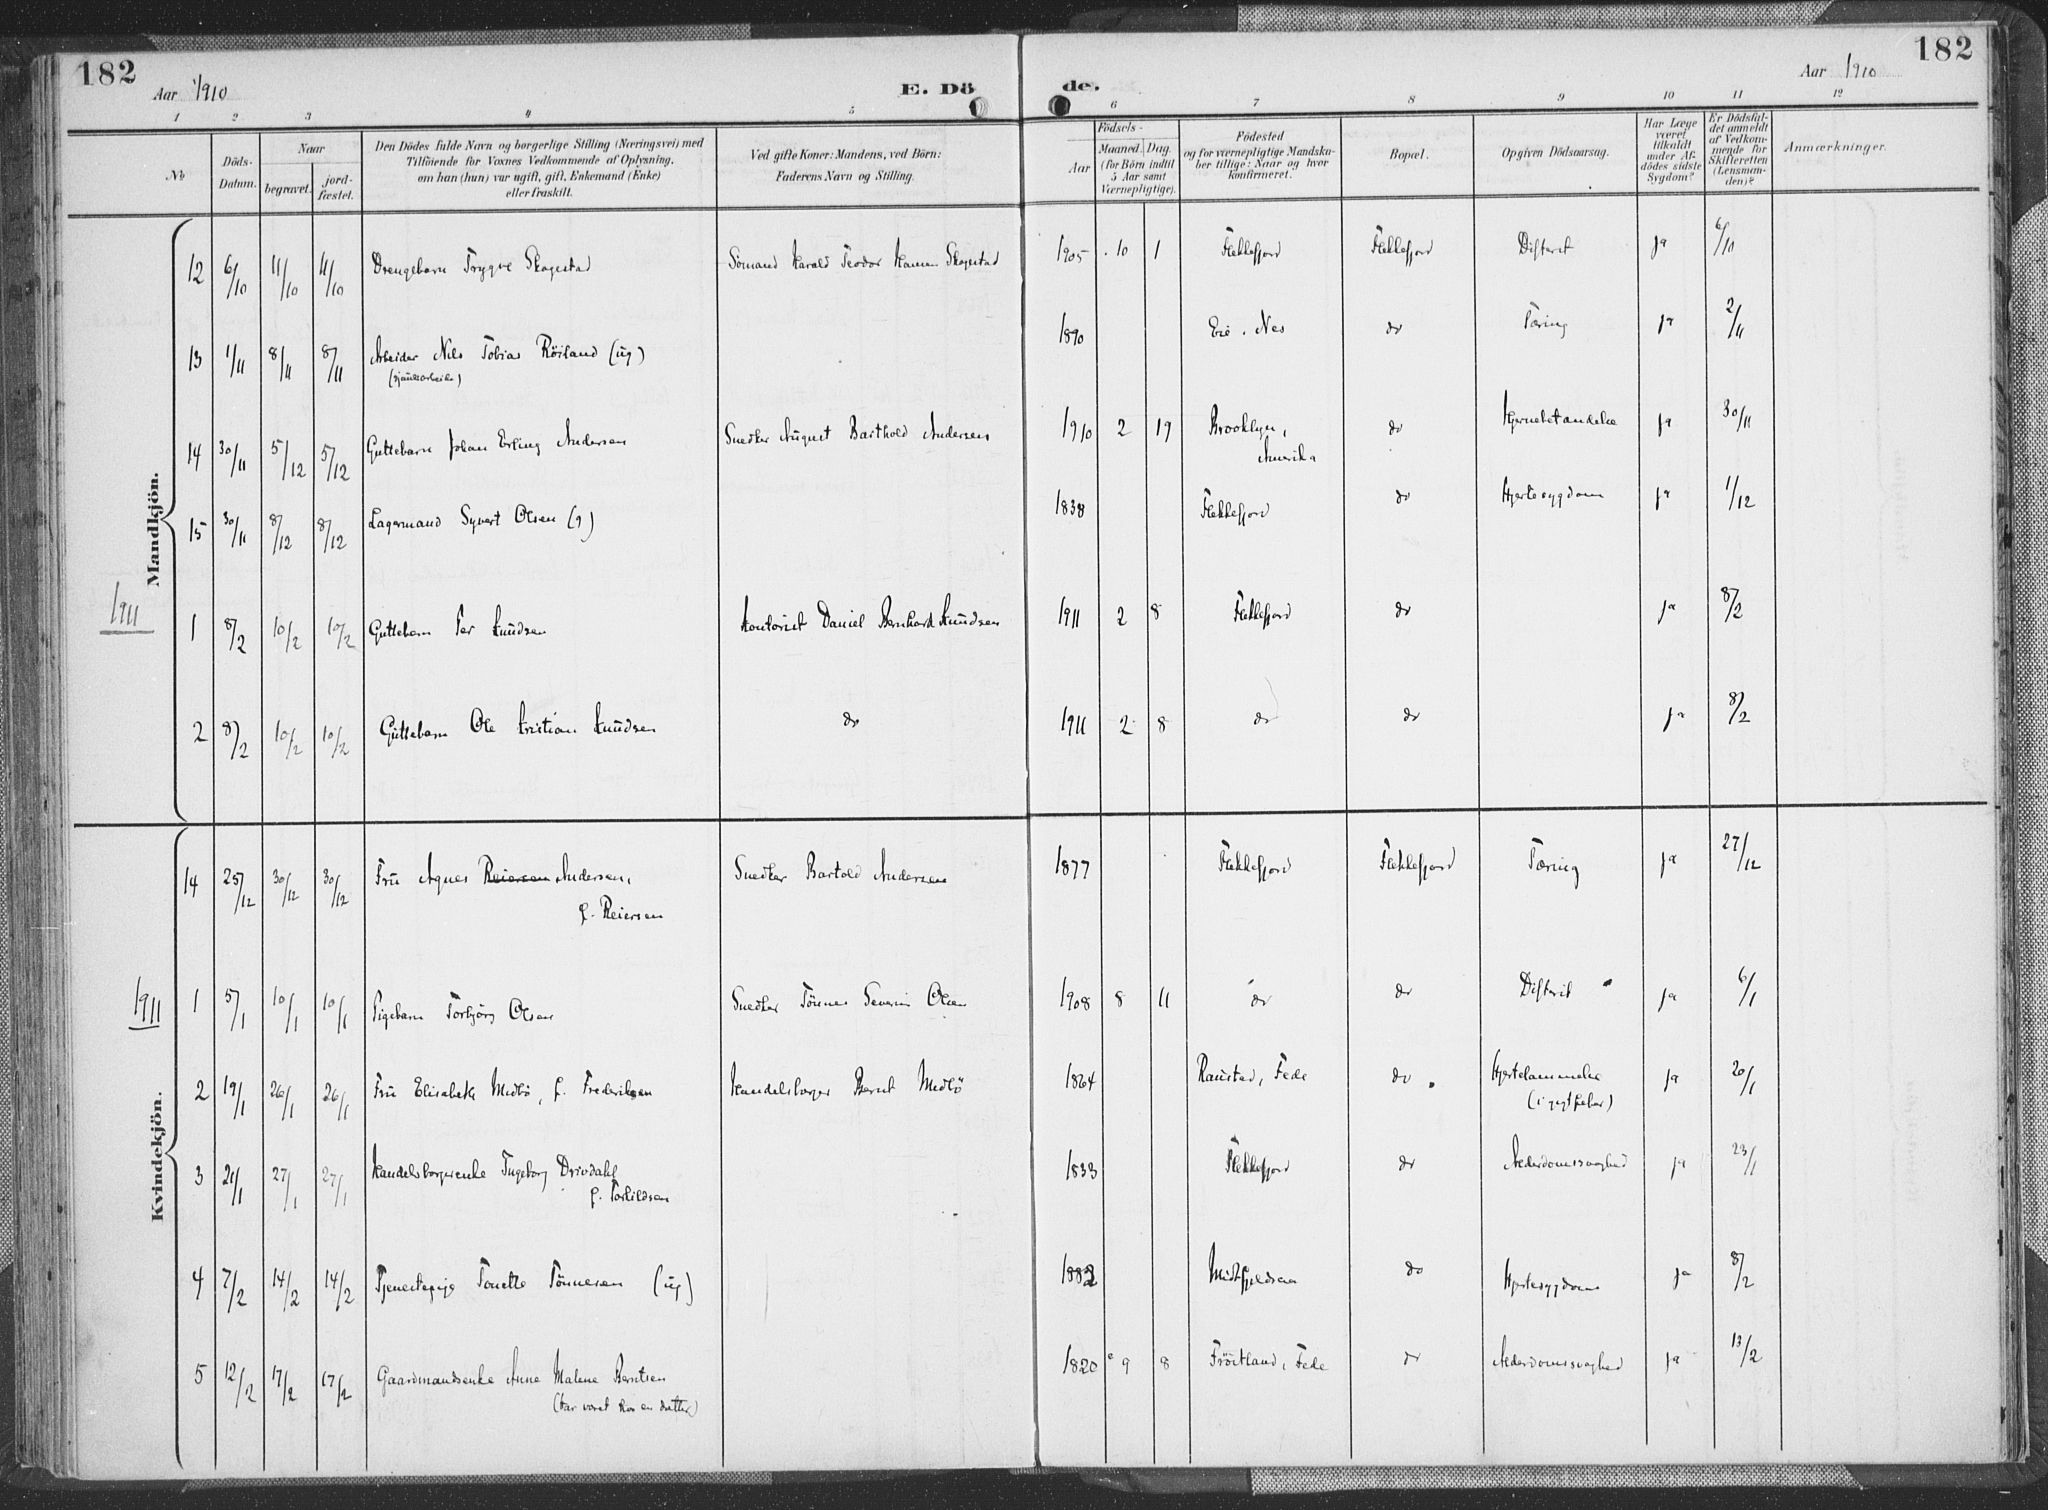 182
Aar 1910
E. Dö
de.
Aar 1910
182
1 2 3 4 5 6 7 8 9 10 11 12
No
Döds-Datum.
Naar
begravet.
jord-fæstet.
Den Dödes fulde Navn og borgerlige Stilling (Næringsvei) med
Tilföiende for Voxnes Vedkommende af Oplysning,
om han (hun) var ugift, gift, Enkemand (Enke)
eller fraskilt.
Ved gifte Koner: Mandens, ved Börn:
Faderens Navn og Stilling.
Födsels-
Aar
Maaned. Dag.
(for Börn indtil
5 Aar samt
Værnepligtige).
Födested
og for værnepligtige Mandska-
ber tillige: Naar og hvor
konfirmeret.
Bopæl.
Opgiven Dödsaarsag.
Har Læge
været
tilkaldt
under Af-
dödes sidste
Sygdom?
Er Dödsfal-
det anmeldt
af Vedkom-
mende for
Skifteretten
(Lensman-
den)?
Anmærkninger.
Mandkjön.
12 6/10 11/10 11/10 Drengebarn Trygve Skogestad Sömand Harald Teodor Hansen Skogestad 1905 10 1 Flekkefjord Flekkefjord Difterit ja 6/10
13 1/11 8/11 8/11 Arbeider Nils Tobias Röiland (ug) 1890 Eie. Nes do Tæring ja 2/11
(sjauerarbeider)
14 30/11 5/12 5/12 Guttebarn Johan Erling Andersen Snedker August Barthold Andersen 1910 2 19 Brooklyn, do Hjernebetændelse ja 30/11
Amerika
15 30/11 8/12 8/12 Lagermand Syvert Olsen (g) 1838 Flekkefjord do Hjertesygdom ja 1/12
1911
1 8/2 10/2 10/2 Guttebarn Per Knudsen Kontorist Daniel Bernhard Knudsen 1911 2 8 Flekkefjord do ja 8/2
2 8/2 10/2 10/2 Guttebarn Ole Kristian Knudsen do 1911 2 8 do do ja 8/2
Kvindekjön.
14 25/12 30/12 30/12 Fru Agnes Reiersen Andersen, Snedker Bartold Andersen 1877 Flekkefjord Flekkefjord Tæring ja 27/12
f. Reiersen
1911
1 5/1 10/1 10/1 Pigebarn Torbjörg Olsen Snedker Tönnes Severin Olsen 1908 8 11 do do Difterit ja 6/1
2 19/1 26/1 26/1 Fru Elisabeth Midbö, f. Frederiksen Handelsborger Bernt Midbö 1864 Raustad, Fede do Hjertelammelse ja 20/1
(i gigtfeber)
3 21/1 27/1 27/1 Handelsborgerenke Ingeborg Drivdahl 1833 Flekkefjord do Alderdomssvaghed ja 23/1
f. Torkildsen
4 7/2 14/2 14/2 Tjenestepige Tonette Tönnesen (ug) 1882 do Hjertesygdom ja 8/2
5 12/2 17/2 17/2 Gaardmandsenke Anne Malene Berntsen 1820 9 8 Fröitland, Fede do Alderdomssvaghed ja 13/2
(har været hos en datter)